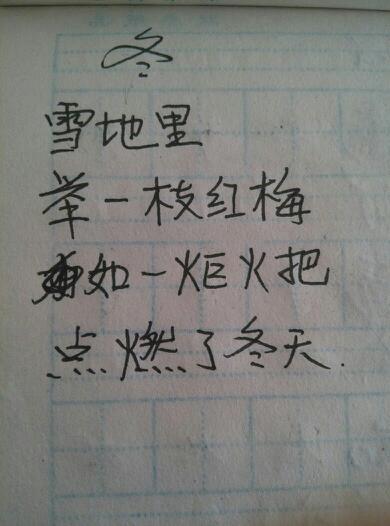 冬
雪地里
举一枝红梅
如一炬火把
点燃了冬天.